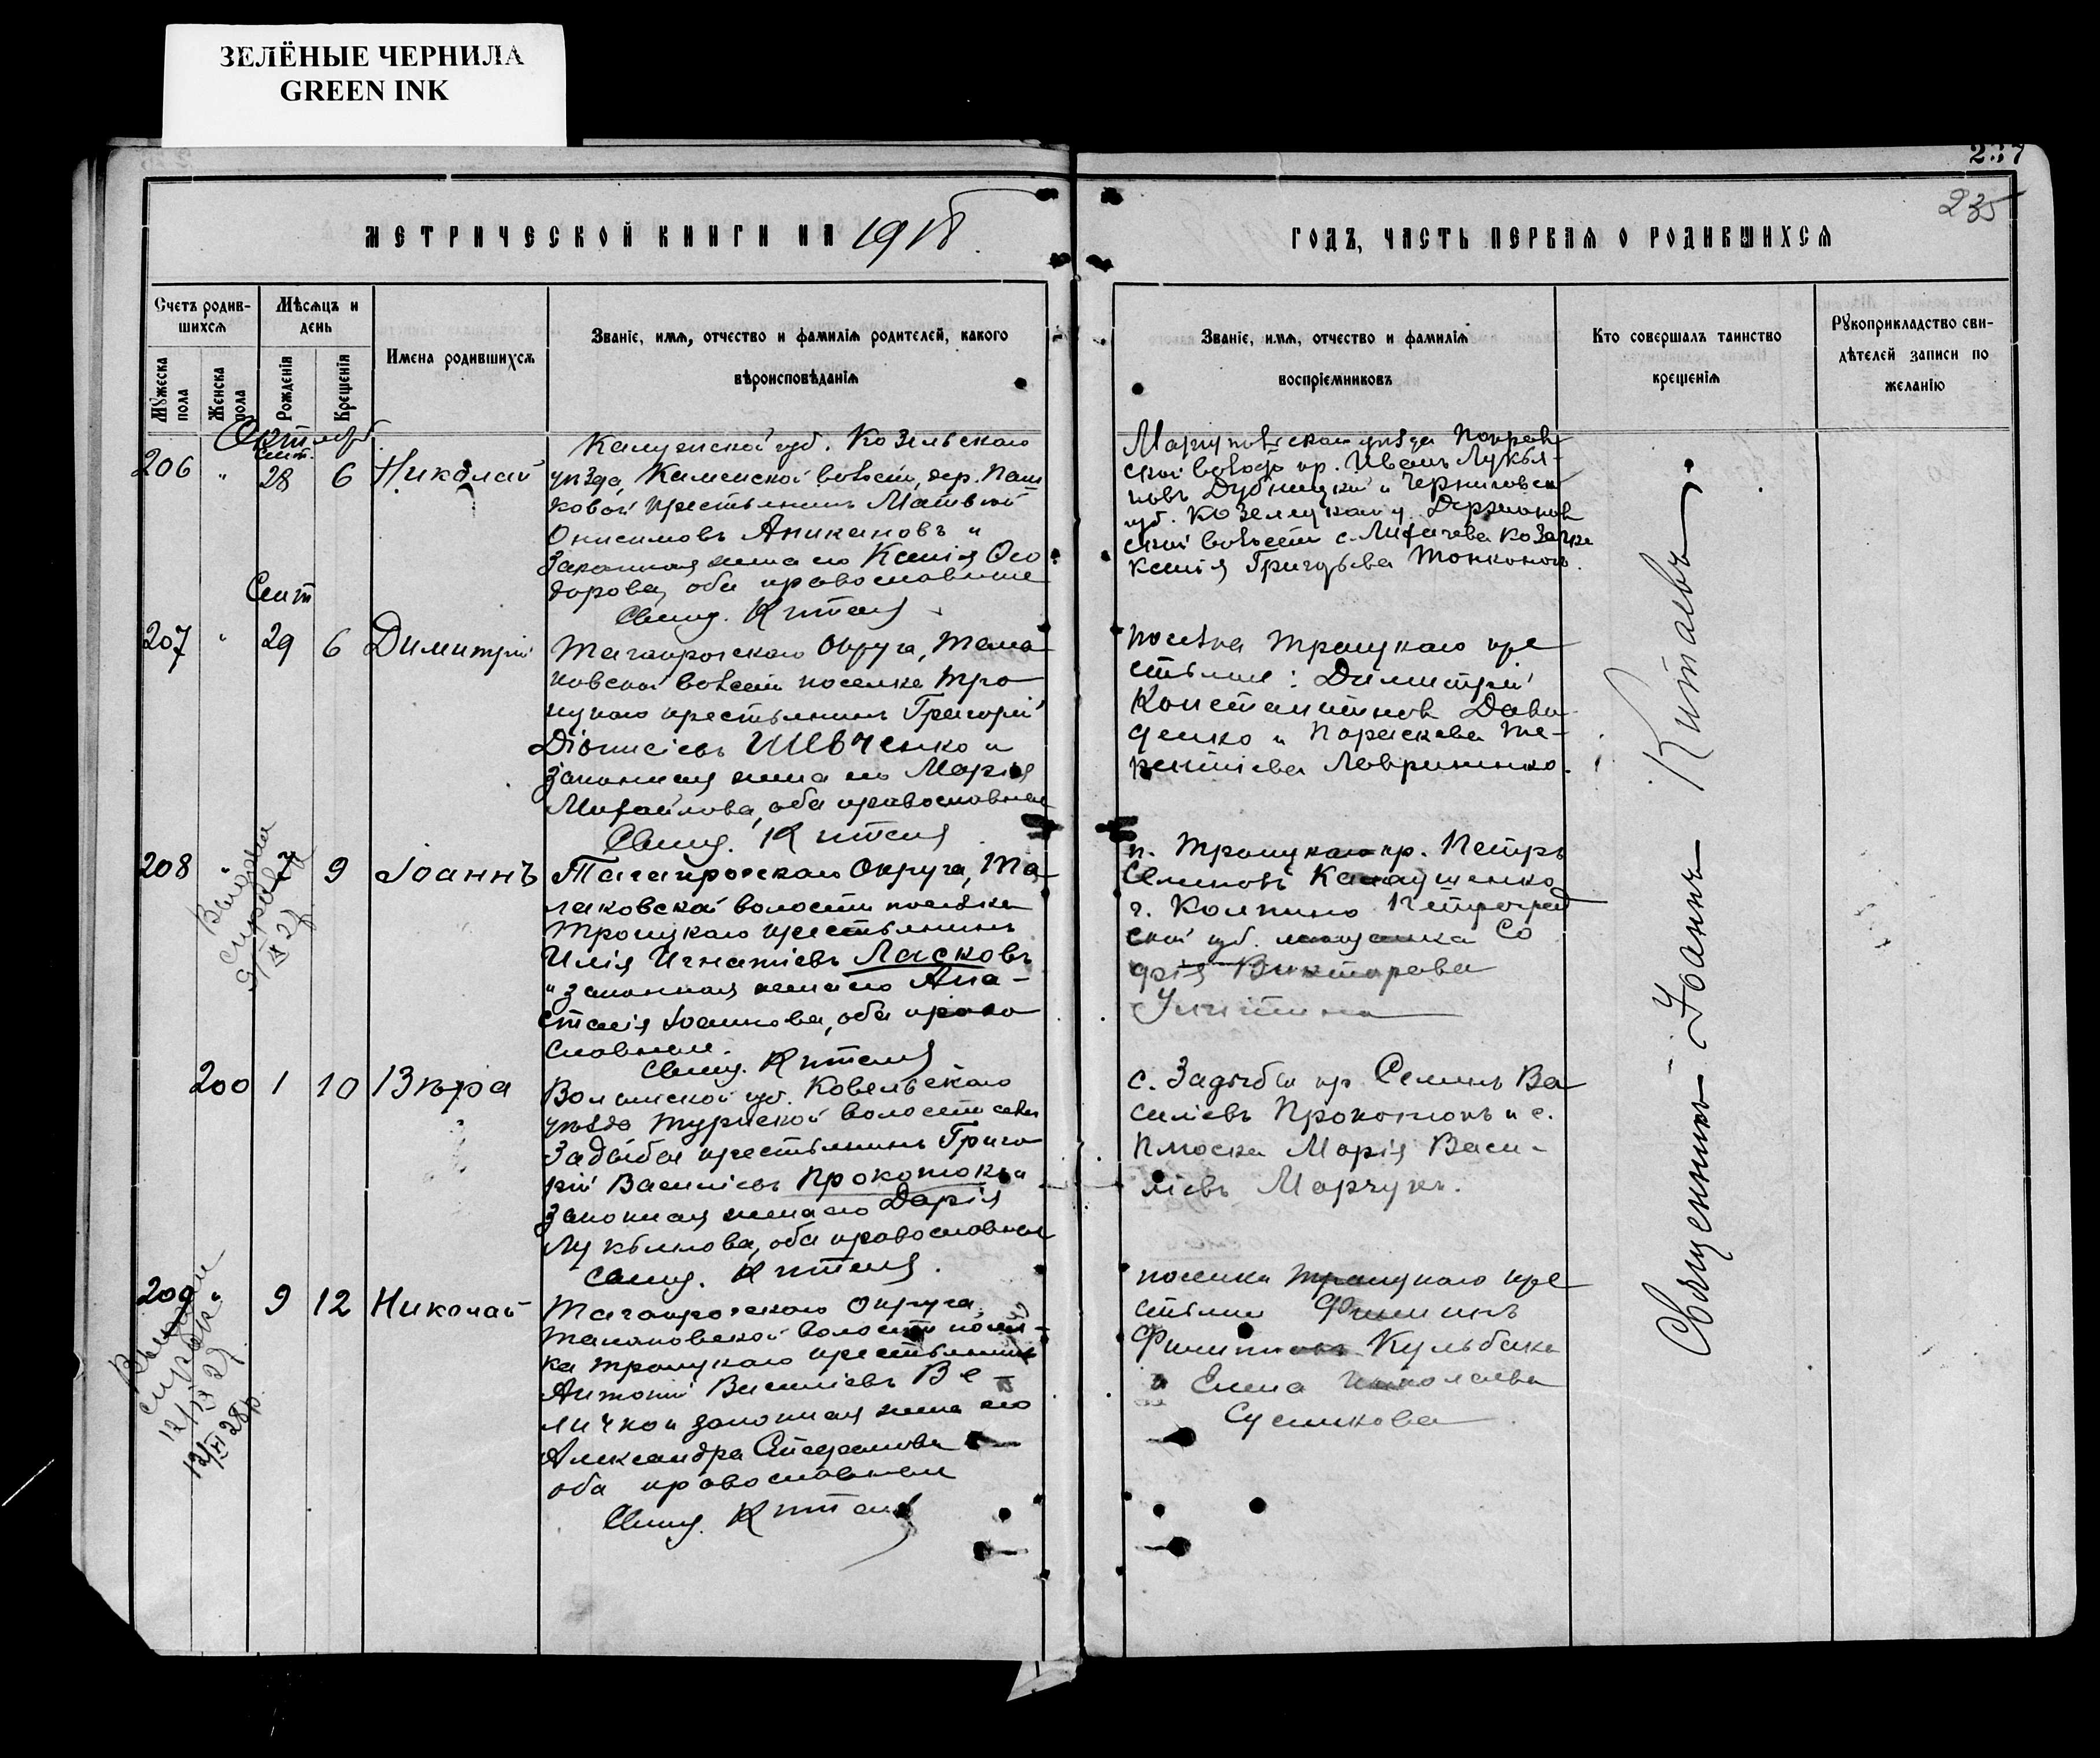 ЗЕЛЁНЫЕ ЧЕРНИЛА
GREEN INK
237
235
МЕТРИЧЕСКОЙ КНИГИ НА 1918
ГОДЪ, ЧАСТЬ ПЕРВАЯ О РОДИВШИХСЯ
Счетъ родив-
шихся
Мужеска
пола
Женска
пола
Мѣсяцъ и
день
Рожденія
Крещенія
Имена родившихся
Званіе, имя, отчество и фамилія родителей, какого
вѣроисповѣданія
Званіе, имя, отчество и фамилія
воспріемниковъ
Кто совершалъ таинство
крещенія
Рукоприкладство сви-
дѣтелей записи по
желанію
Сент.
206 " 28 6 Николай
Козельскаго
уѣзда, Каменской волости, дер.
ковой крестьянинъ Матвѣй
Онисимовъ Аникановъ и
законная жена его Ксенія Ѳео
дорова, оба православные
Свящ. Китаев
кр. Иванъ Лукья-
новъ Дубницкій и Черниговск
губ. Козелецкаго у.
ской волости с. Лихачева козачка
Ксенія Григорьева
Сент
207 " 29 6 Димитрій
Таганрогскаго Округа,
новской волости поселка Тро
ицкаго крестьянинъ Григорій
Діонисіевъ Шевченко и
законная жена его Марія
Михайлова, оба православные
Свящ. Китаев
поселка Троицкаго кре
стьяне: Димитрій
Константинов Дави
денко и Параскева Те-
рентіева Лавриненко.
208 " 7 9 Іоаннъ
Выдана
справка
Таганрогскаго Округа,
лаковской волости поселка
Троицкаго крестьянинъ
Илія Игнатіевъ Ласковъ
и законная жена его Ана-
стасія Іоаннова, оба право
славные.
Свящ. Китаев
п. Троицкаго кр. Петръ
Семеновъ
г. Колпино Петроград
ской губ. мещанка Со
фія Викторова
200 1 10 Вѣра
Волынской губ. Ковельскаго
уѣзда Турійской волости села
Задыбы крестьянинъ Григо
рій Василіевъ Прокопюкъ и
законная жена его Дарія
Лукьянова, оба православные
Свящ. Китаев.
с. Задыбы кр Семенъ Ва
силіевъ Прокопюкъ и с.
Плоска Марія Васи-
ліевъ Марчукъ.
209 " 9 12 Николай
Выдан
справка
Таганрогскаго Округа,
волости посел-
ка Троицкаго крестьянинъ
Антоній Василіевъ Ве-
личко и законная жена его
Александра Стефанова
оба православные
Свящ. Китаев
поселка Троицкаго кре
стьяне Филиппъ
Филипповъ Кульбака
и Елена Николаева
Сусликова
Священникъ Іоаннъ Китаевъ